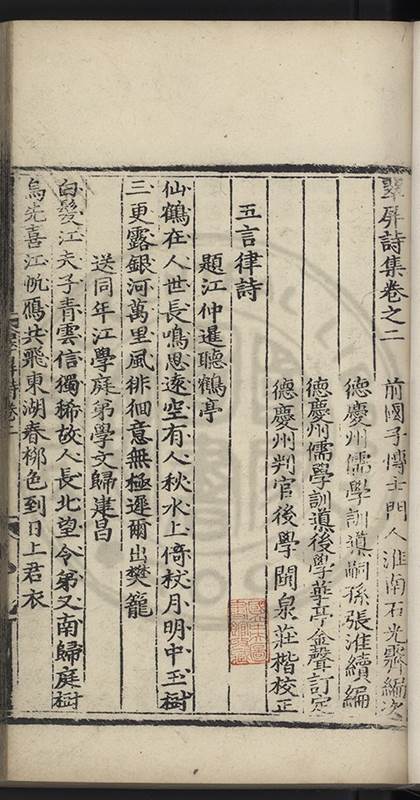 翠屏詩集卷之二
前國子博士門人淮南石光霽編次
德慶州儒學訓導嗣孫張淮續編
德慶州儒學訓導後學華亭金聲訂定
德慶州判官後學閩泉莊楷校正
五言律詩
題江仲暹聽鶴亭
仙鶴在人世長鳴思遠空有人秋水上倚杖月明中玉樹
三更露銀河萬里風徘徊意無極邇爾出樊籠
送同年江學庭弟學文歸建昌
白髮江夫子青雲信獨稀故人長北望令弟又南歸庭樹
烏先喜江帆鴈共飛東湖春柳色到日上君衣